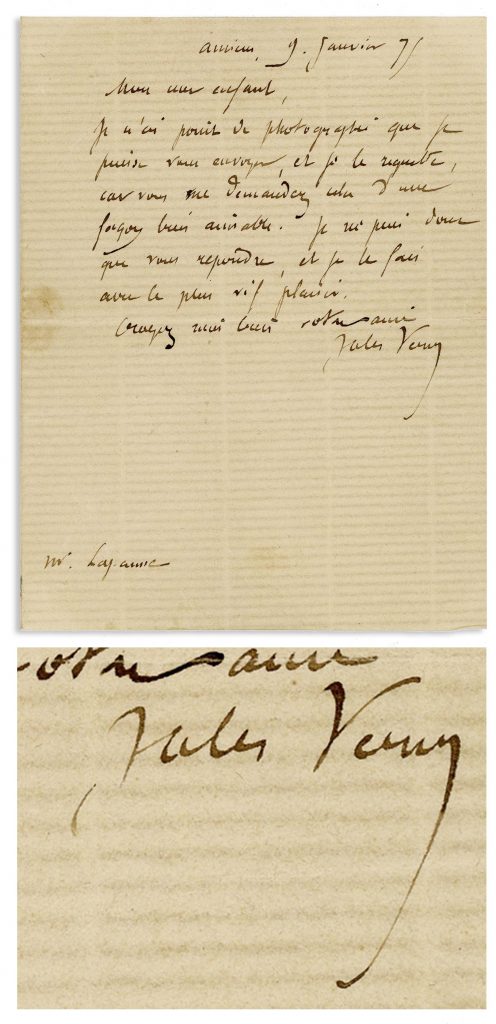 Amiens, 9. Janvier 75
Mon cher enfant,
Je n'ai point de photographie que je
puisse vous envoyer, et je le regrette,
car vous me demandez cela d'une
façon bien aimable. Je ne puis donc
que vous répondre, et je le fais
avec le plus vif plaisir.
Croyez moi bien votre ami
Jules Verne
Mr.
votre ami
Jules Verne